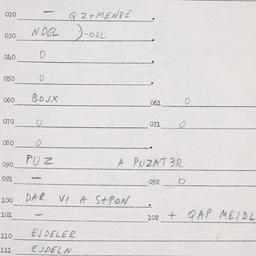 020 — QZ+MENSE .
030 NOGL )-OGL
040 0
050 0 .
060 BOJX 061 0
070 0 071 0
080 0 .
090 PUZ A PUZAT3R
091 — 092 0
100 DAR VI A S+PON .
101 — 102 + QAP MEIDL
110 EJDELER
111 EJDELN